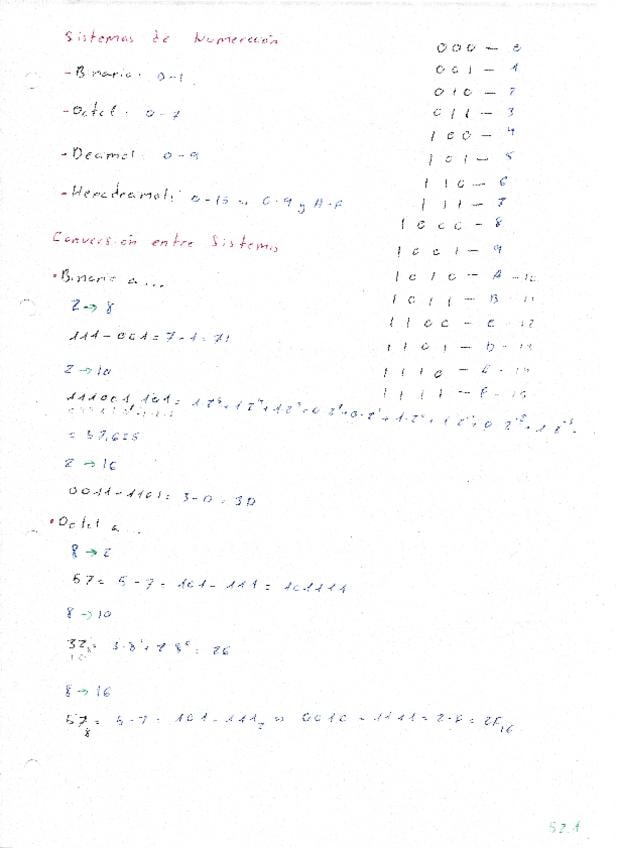 Sistemas de Numeración
- Binario: 0-1
- Octal: 0-7
- Decimal: 0-9
- Hexadecimal: 0-15 0-9 y A-F
000 - 0
001 - 1
010 - 2
011 - 3
100 - 4
101 - 5
110 - 6
111 - 7
1000 - 8
1001 - 9
1010 - A - 10
1011 - B - 11
1100 - C - 12
1101 - D - 13
1110 - E - 14
1111 - F - 15
Conversión entre Sistemas
• Binario a...
2 → 8
111 - 001 = 7 - 1 = 71
2 → 10
111001,101 =
= 57,625
2 → 16
0011 - 1101 = 3 - D = 3D
• Octal a...
8 → 2
57 = 5 - 7 = 101 - 111 = 101111
8 → 10
32₈ = 3·8¹ + 2·8⁰ = 26
8 → 16
57₈ = 5 - 7 = 101 - 111₂ 0010 - 1111 = 2 - F = 2F₁₆
SZ.1